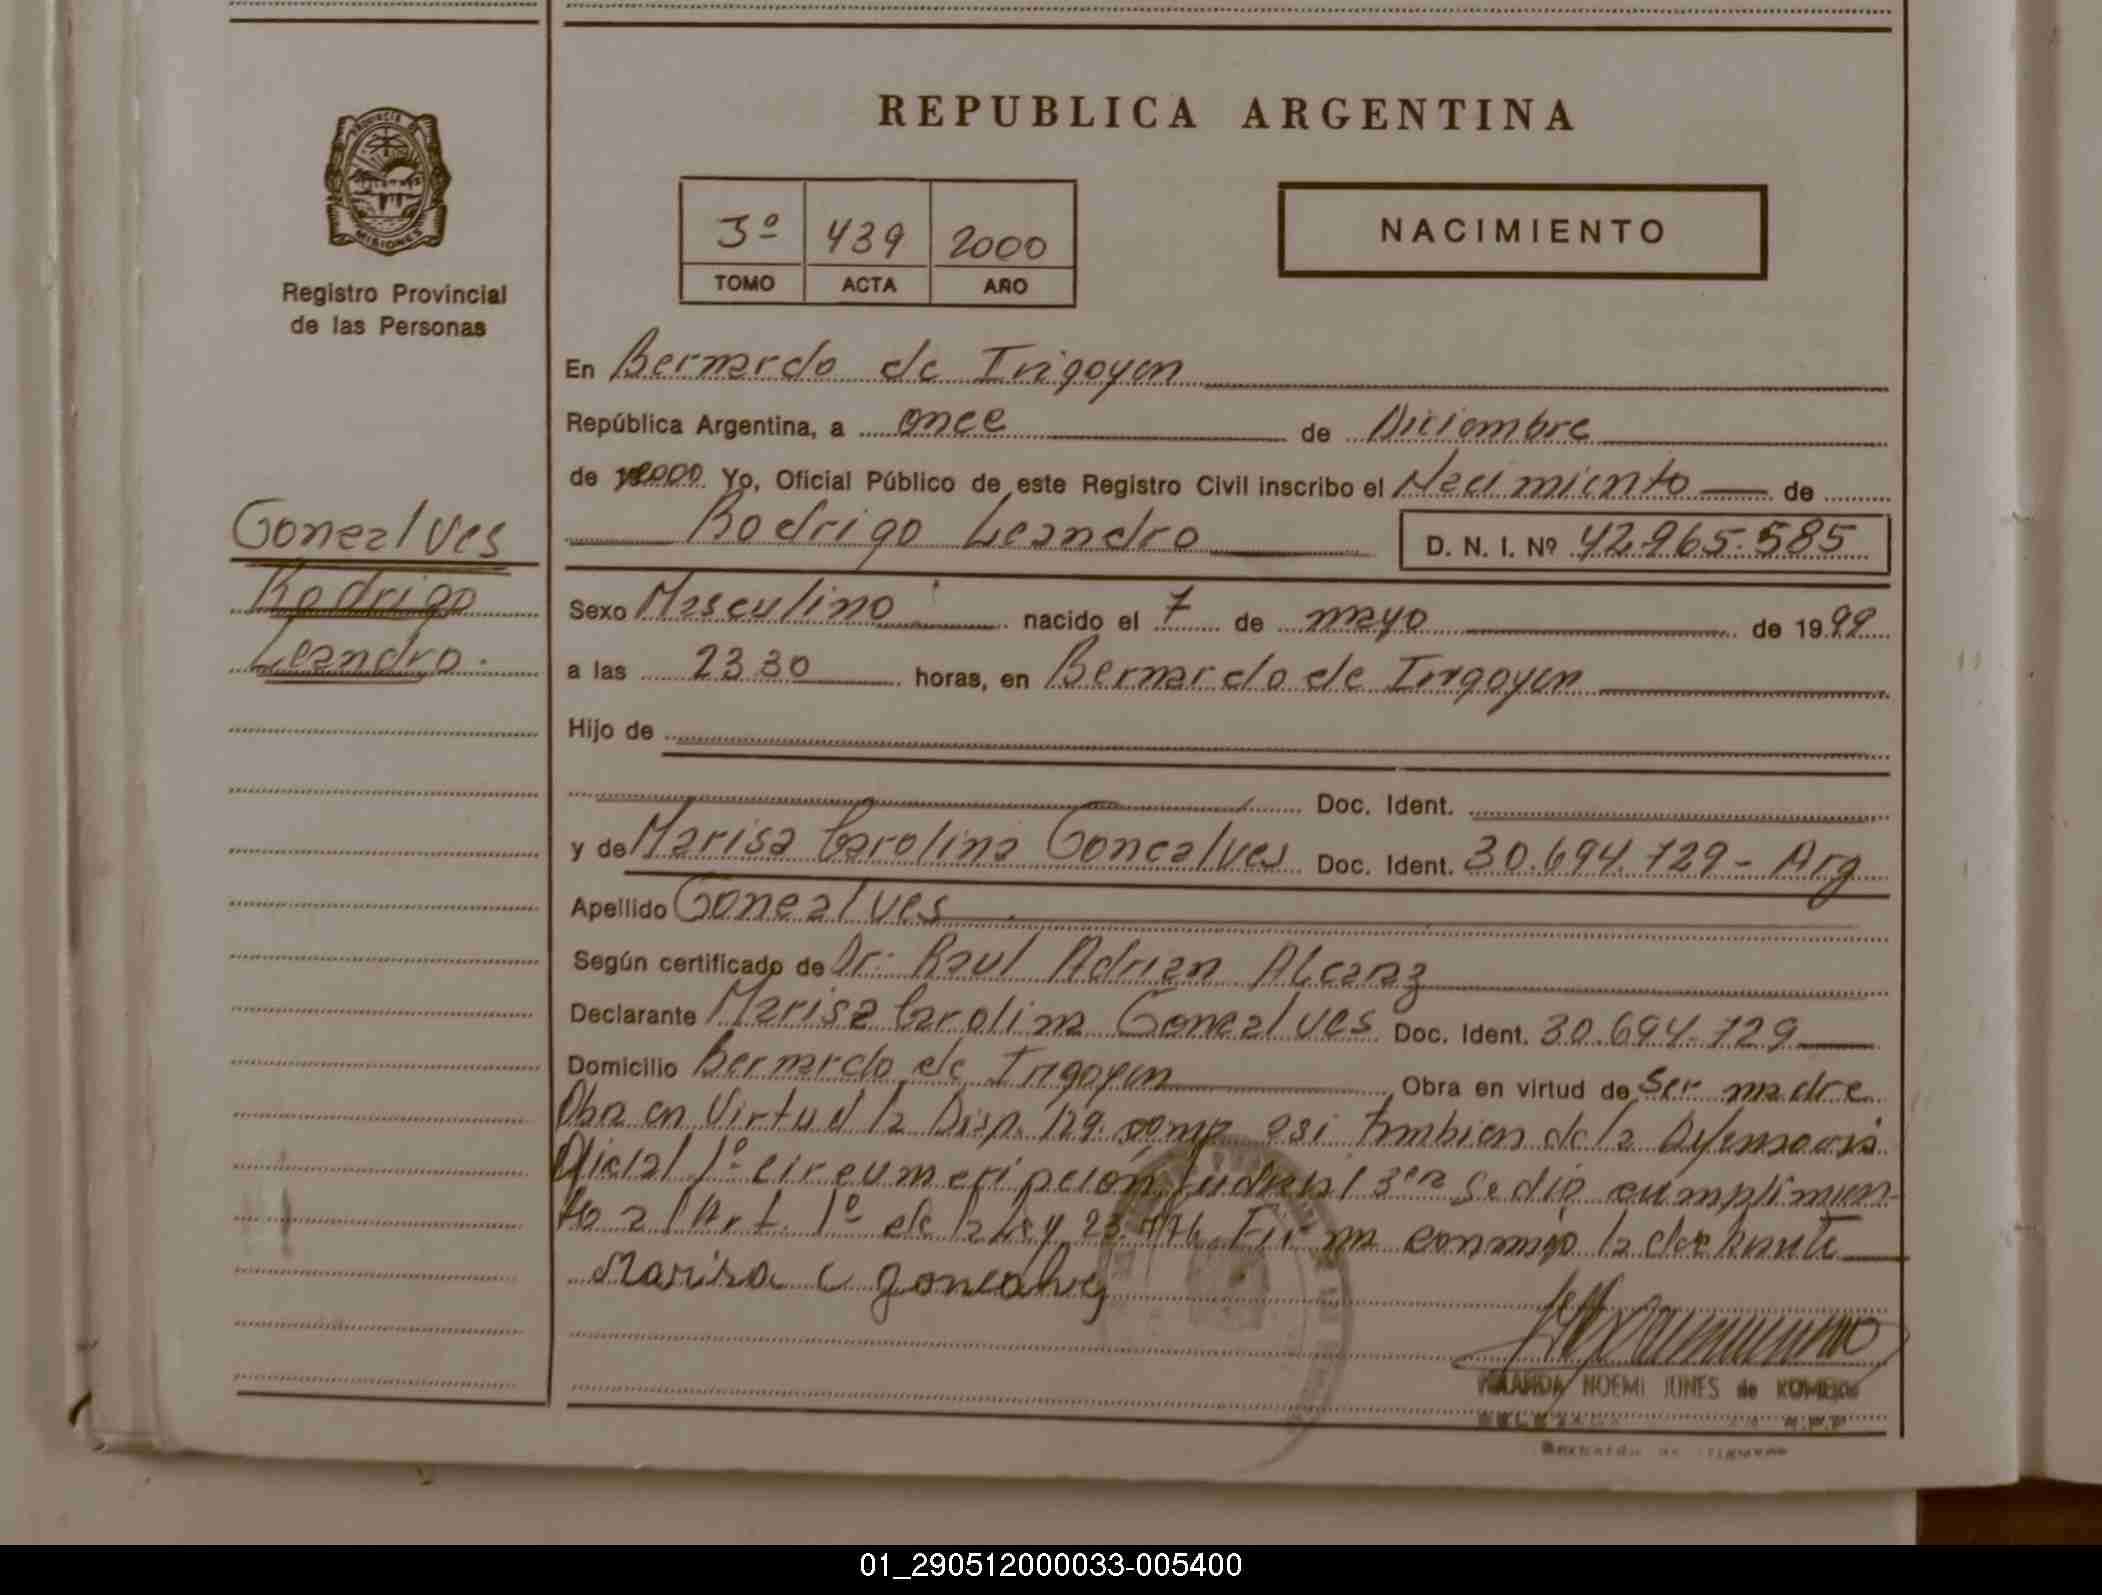 REPUBLICA ARGENTINA
PROVINCIA DE
MISIONES
Registro Provincial
de las Personas
3º 439 2000
TOMO ACTA AÑO
NACIMIENTO
En Bernardo de Irigoyen
República Argentina, a once de Diciembre
de 2000 Yo, Oficial Público de este Registro Civil inscribo el Nacimiento de
Rodrigo Leandro D. N. I. Nº 42.965.585
Goncalves
Rodrigo
Leandro.
Sexo Masculino nacido el 7 de mayo de 1999
a las 23 30 horas, en Bernardo de Irigoyen
Hijo de
Doc. Ident.
y de Marisa Carolina Goncalves Doc. Ident. 30.694.729 - Arg
Apellido Goncalves
Según certificado de Dr. Raul Adrian Alcaraz
Declarante Marisa Carolina Goncalves Doc. Ident. 30.694.729
Domicilio Bernardo de Irigoyen Obra en virtud de Ser madre
Obra en Virtud la Disp. 129. como asi tambien de la Defensoria
Oficial 1º circumcripción Judicial 3era Se dió cumplimien-
to al Art. 1º de la Ley Firma conmigo la declarante
Marisa C goncalves
YOLANDA NOEMI JONES de ROMERO
Bernardo de Irigoyen
01_290512000033-005400